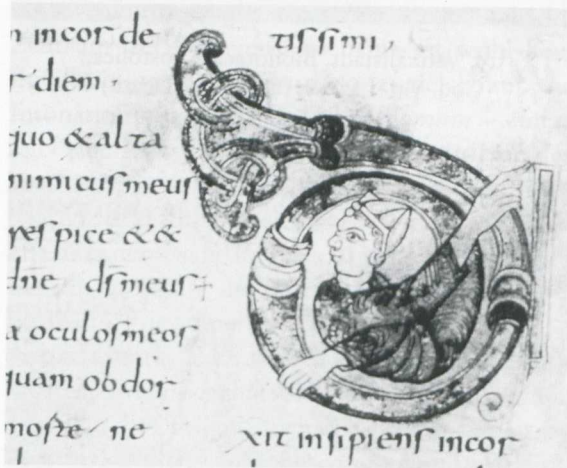 n incor de
r diem
quo & alta
nimicus meus
respice & &
dn̄e ds̄ meus
a oculos meos
quam ob dor
morte ne
tissimi
DIxit insipiens incor